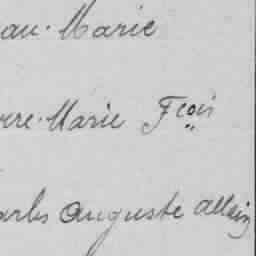 au. Marie
rre. Marie Fçois
arles Auguste Allain